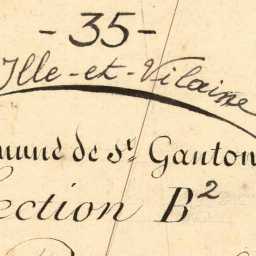 - 35 -
Ille-et-Vilaine
mune de St. Ganton
ection B²